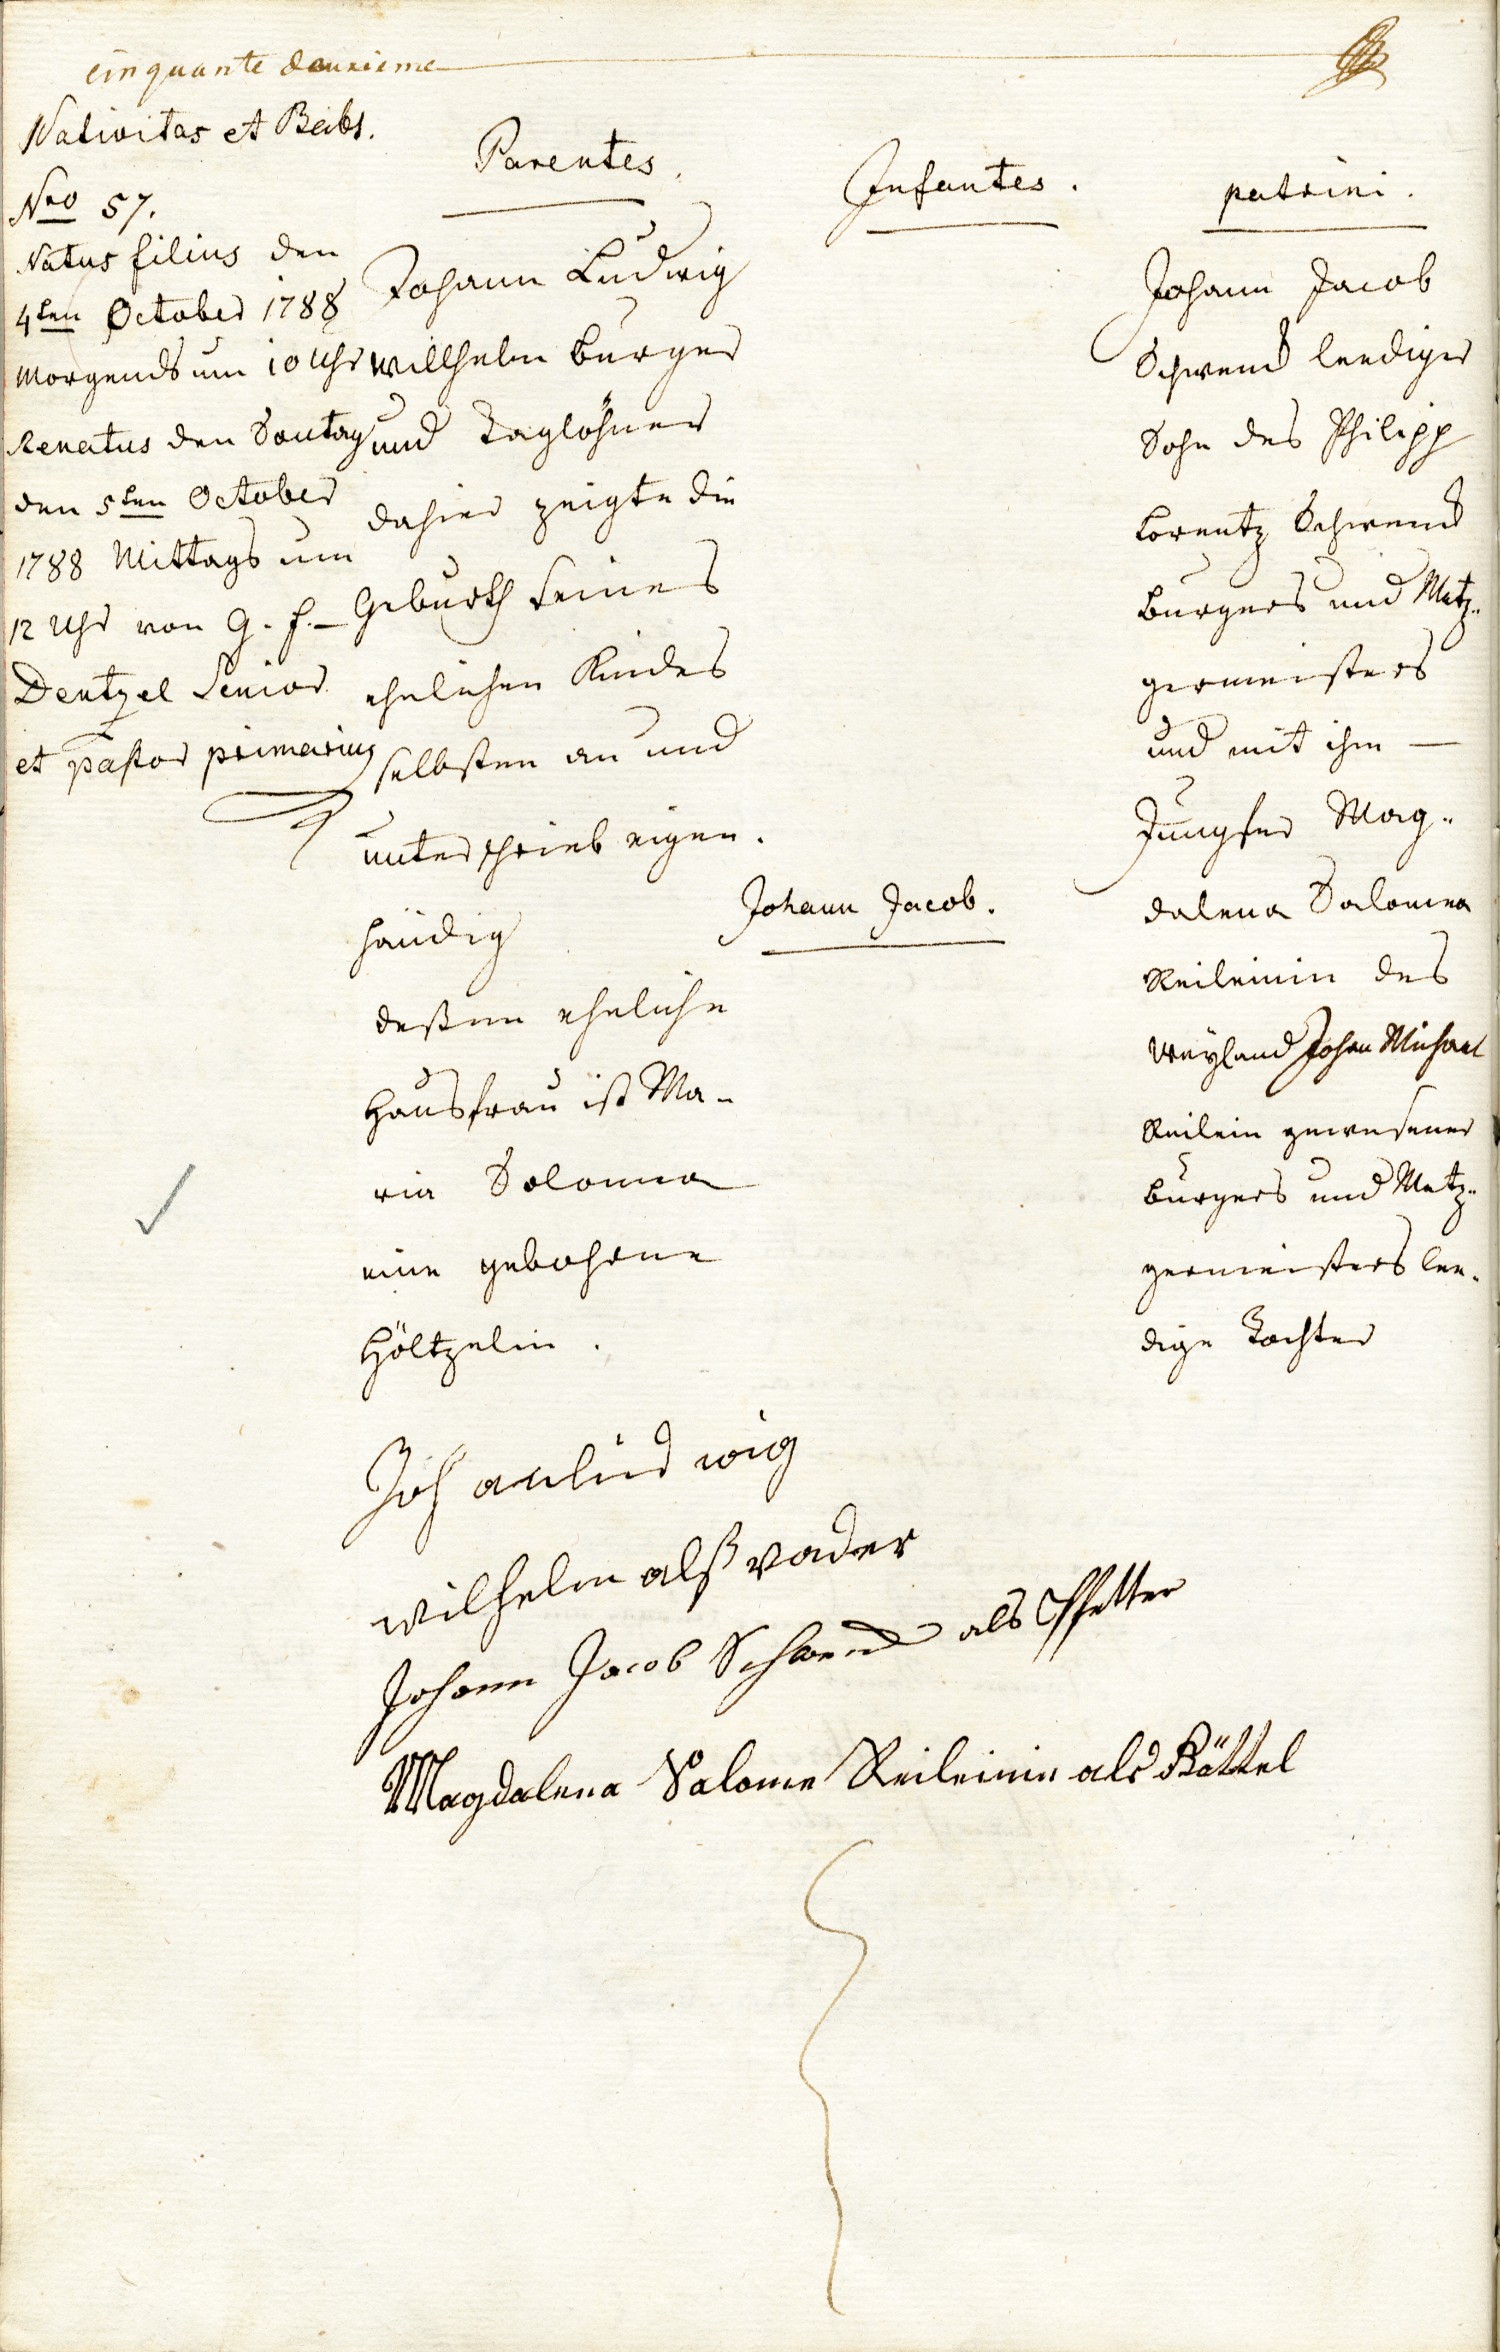 cinquante deuxieme
Nativitas et Babt.
Nro 57.
Natus filius den
4ten October 1788
morgends um 10 Uhr
Renatus den Sontag
den 5ten October
1788 Mittags um
12 Uhr von G. f.
Dentzel Senior
et pastor primarius
Parentes.
Johann Ludwig
Willhelm burger
und Taglöhner
dahier zeigte die
Geburth seines
ehelichen Kindes
selbsten an und
unterschrieb eigen.
händig
deßen eheliche
Hausfrau ist Ma-
ria Salomea
eine gebohrne
Höltzelin.
Infantes.
Johann Jacob.
patrini.
Johann Jacob
Schwend leediger
Sohn des Philipp
Lorentz Schwend
burgers und Metz-
germeisters
und mit ihm —
Jungfer Mag-
dalena Salomea
Reileinin des
weyland Johan Michael
Reilein gewesener
burgers und Metz-
germeisters lee-
dige Tochter
Joh anludwig
wilhelm alß vader
Johann Jacob Schwend als Pfetter
Magdalena Salome Reileinin als Göttel